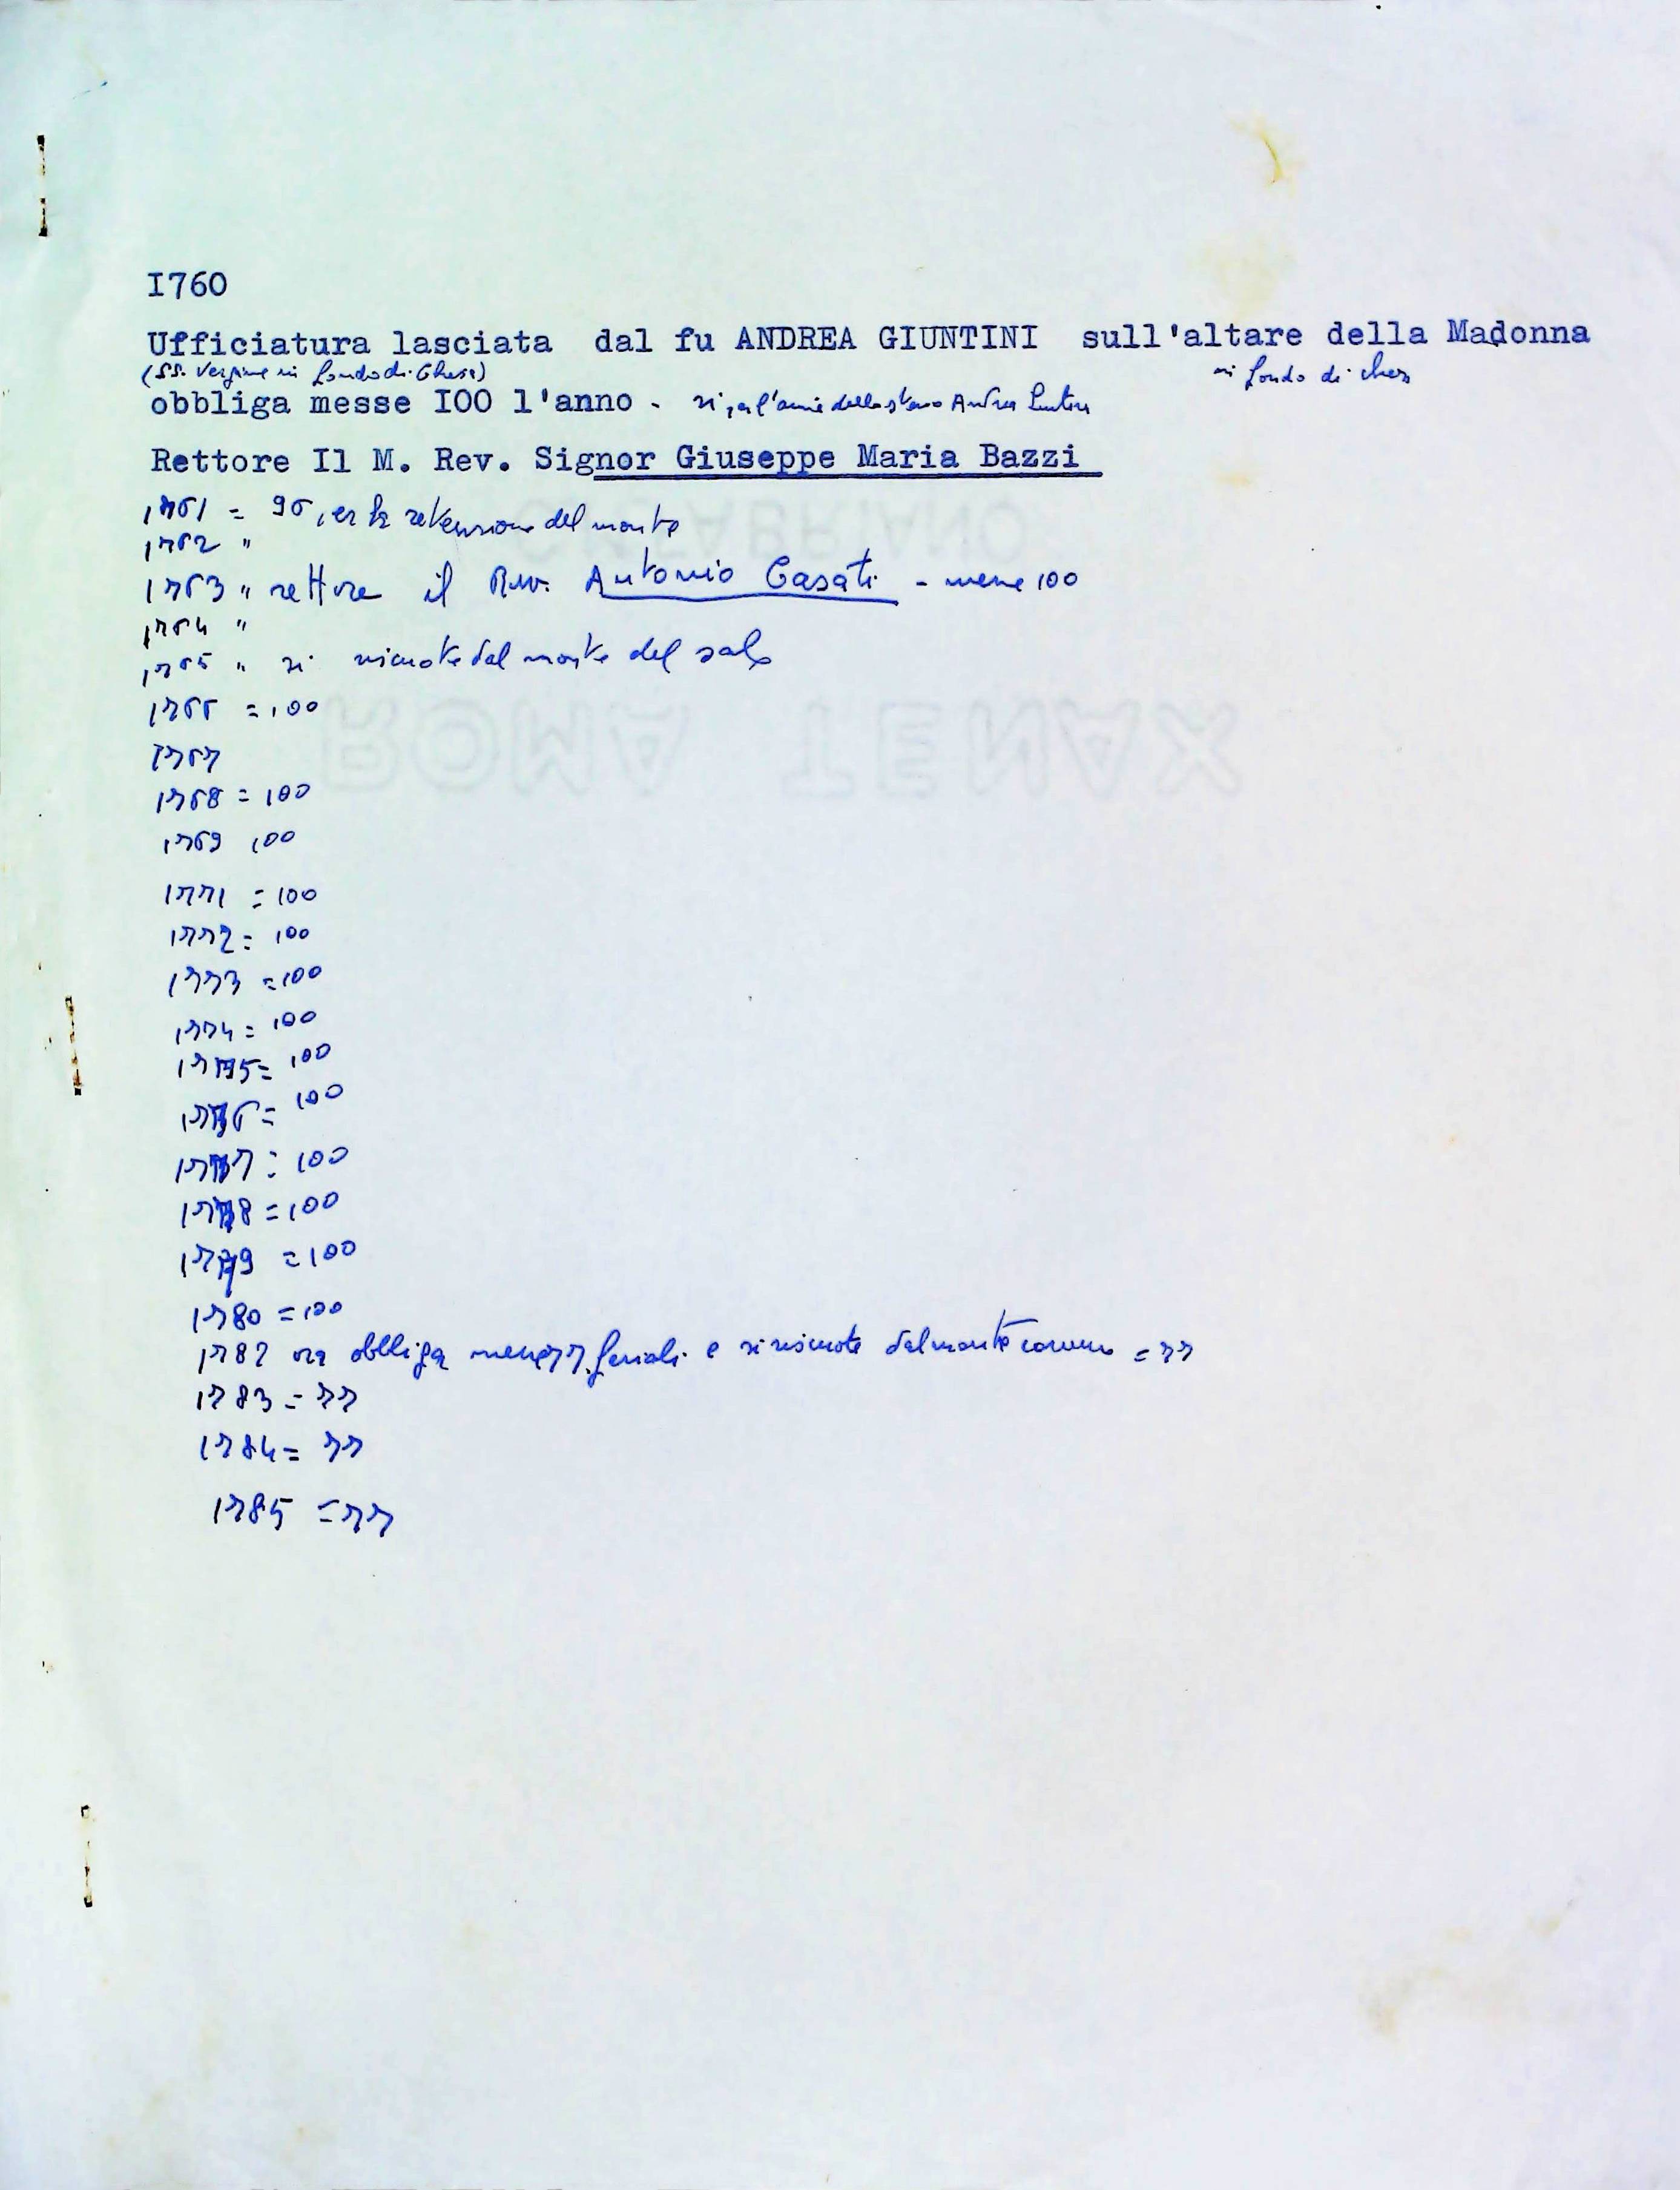 I760
Ufficiatura lasciata dal fu ANDREA GIUNTINI sull'altare della Madonna
(SS. Vergine in fondo di Chiesa) in fondo di chiesa
obbliga messe I00 l'anno - Andrea
Rettore Il M. Rev. Signor Giuseppe Maria Bazzi
1761 = 96 per la retensione del monte
1762 "
1763 " rettore il Rev. Antonio Casati - messe 100
1764 "
1765 " si riscuote dal monte del sale
1766 = 100
1767
1768 = 100
1769 100
1771 = 100
1772 = 100
1773 = 100
1774 = 100
1775 = 100
1776 = 100
1777 = 100
1778 = 100
1779 = 100
1780 = 100
1782 ora obbliga messe 77 feriali e si riscuote dal monte comune = 77
1783 = 77
1784 = 77
1785 = 77
CM FABRIANO
ROMA TENAX